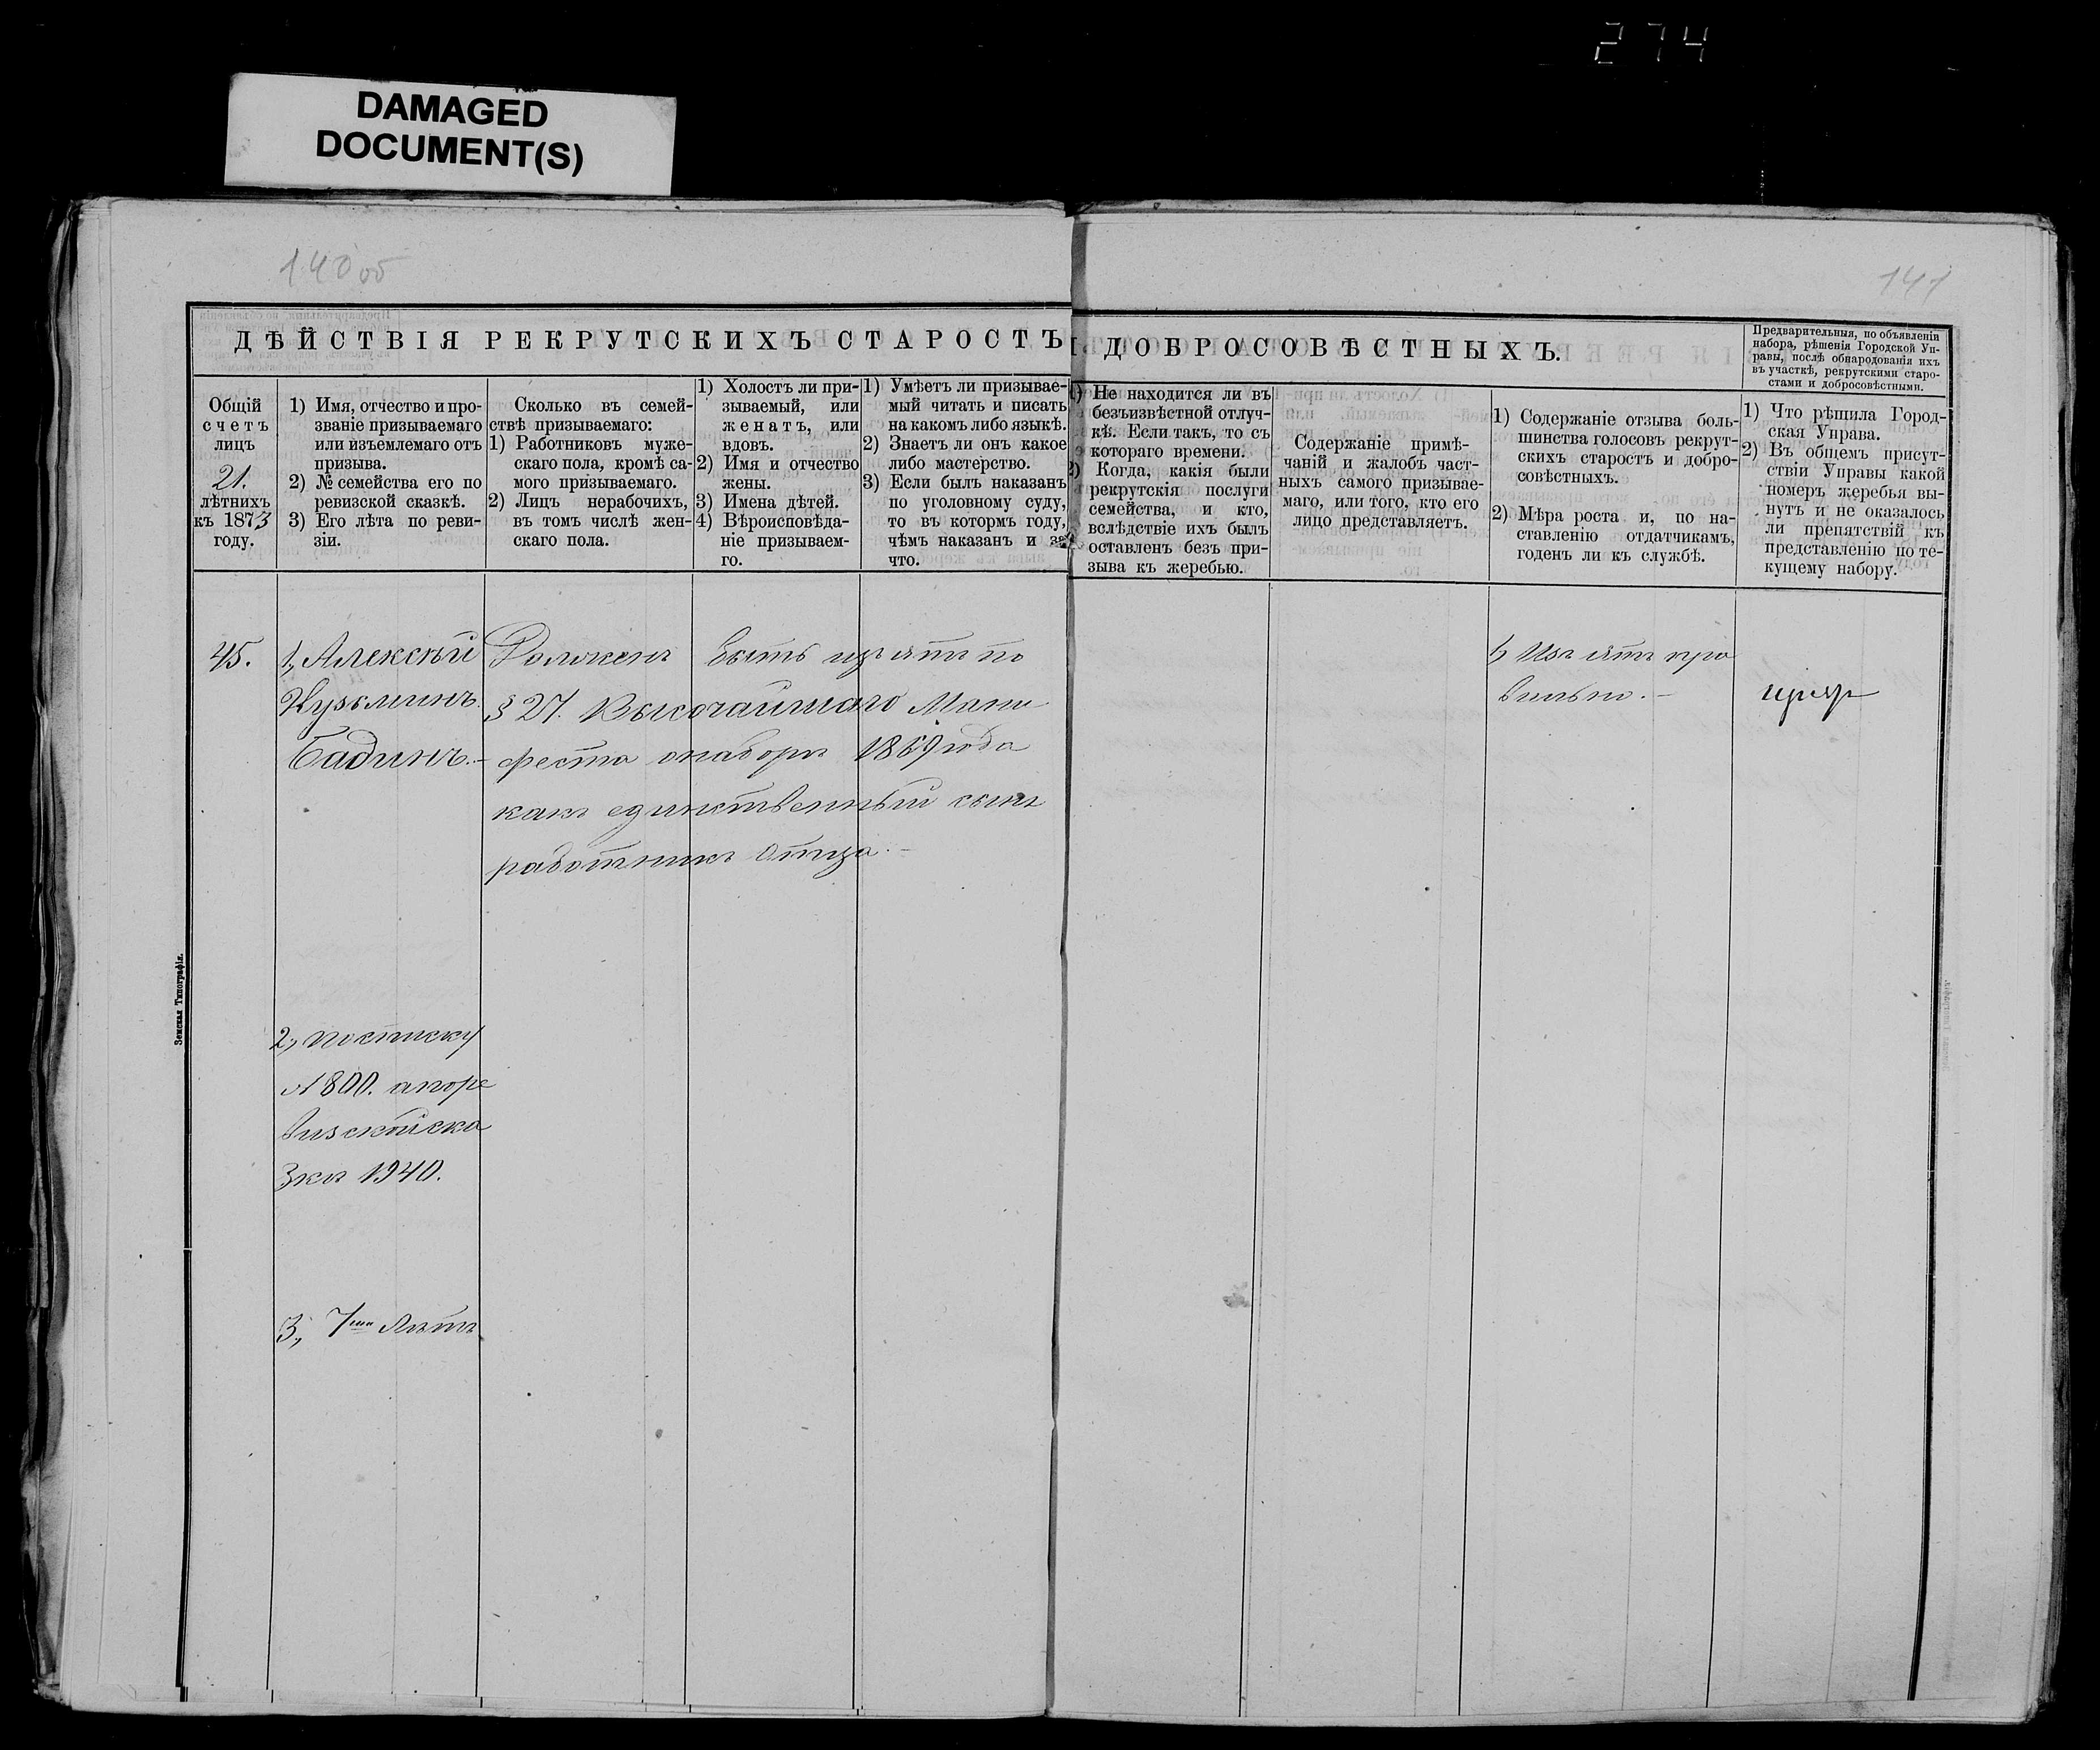 274
DAMAGED
DOCUMENT(S)
140 об
141
ДѢЙСТВІЯ РЕКРУТСКИХЪ СТАРОСТЪ
И ДОБРОСОВѢСТНЫХЪ.
Предварительныя, по объявленіи
набора, рѣшенія Городской Уп-
равы, послѣ обнародованія ихъ
въ участкѣ, рекрутскими старо-
стами и добросовѣстными.
Общій
счетъ
лицъ
21.
лѣтнихъ
къ 1873
году.
1) Имя, отчество и про-
званіе призываемаго
или изъемлемаго отъ
призыва.
2) № семейства его по
ревизской сказкѣ.
3) Его лѣта по реви-
зіи.
Сколько въ семей-
ствѣ призываемаго:
1) Работниковъ муже-
скаго пола, кромѣ са-
мого призываемаго.
2) Лицъ нерабочихъ,
въ томъ числѣ жен-
скаго пола.
1) Холостъ ли при-
зываемый, или
женатъ, или
вдовъ.
2) Имя и отчество
жены.
3) Имена дѣтей.
4) Вѣроисповѣда-
ніе призываем-
го.
1) Умѣетъ ли призывае-
мый читать и писать
на какомъ либо языкѣ.
2) Знаетъ ли онъ какое
либо мастерство.
3) Если былъ наказанъ
по уголовному суду,
то въ котормъ году,
чѣмъ наказанъ и за
что.
1) Не находится ли въ
безъизвѣстной отлуч-
кѣ. Если такъ, то съ
котораго времени.
2) Когда, какія были
рекрутскія послуги
семейства, и кто,
вслѣдствіе ихъ былъ
оставленъ безъ при-
зыва къ жеребью.
Содержаніе примѣ-
чаній и жалобъ част-
ныхъ самого призывае-
маго, или того, кто его
лицо представляетъ.
1) Содержаніе отзыва боль-
шинства голосовъ рекрут-
скихъ старостъ и добро-
совѣстныхъ.
2) Мѣра роста и, по на-
ставленію отдатчикамъ,
годенъ ли къ службѣ.
1) Что рѣшила Город-
ская Управа.
2) Въ общемъ присут-
ствіи Управы какой
номеръ жеребья вы-
нутъ и не оказалось
ли препятствій къ
представленію по те-
кущему набору.
45.
1, Алексѣй
Кузьминъ
Бадинъ.-
Долженъ быть изъятъ по
§ 27. Высочайшаго Мани
феста о наборѣ 1869 года
какъ единственный сынъ
работникъ отца.-
1, Изъятъ пра
вильно.-
2, по списку
№ 800. а по ре
визской ска
зкѣ 1940.
3, 7ми Лѣтъ
Земская Типографія.